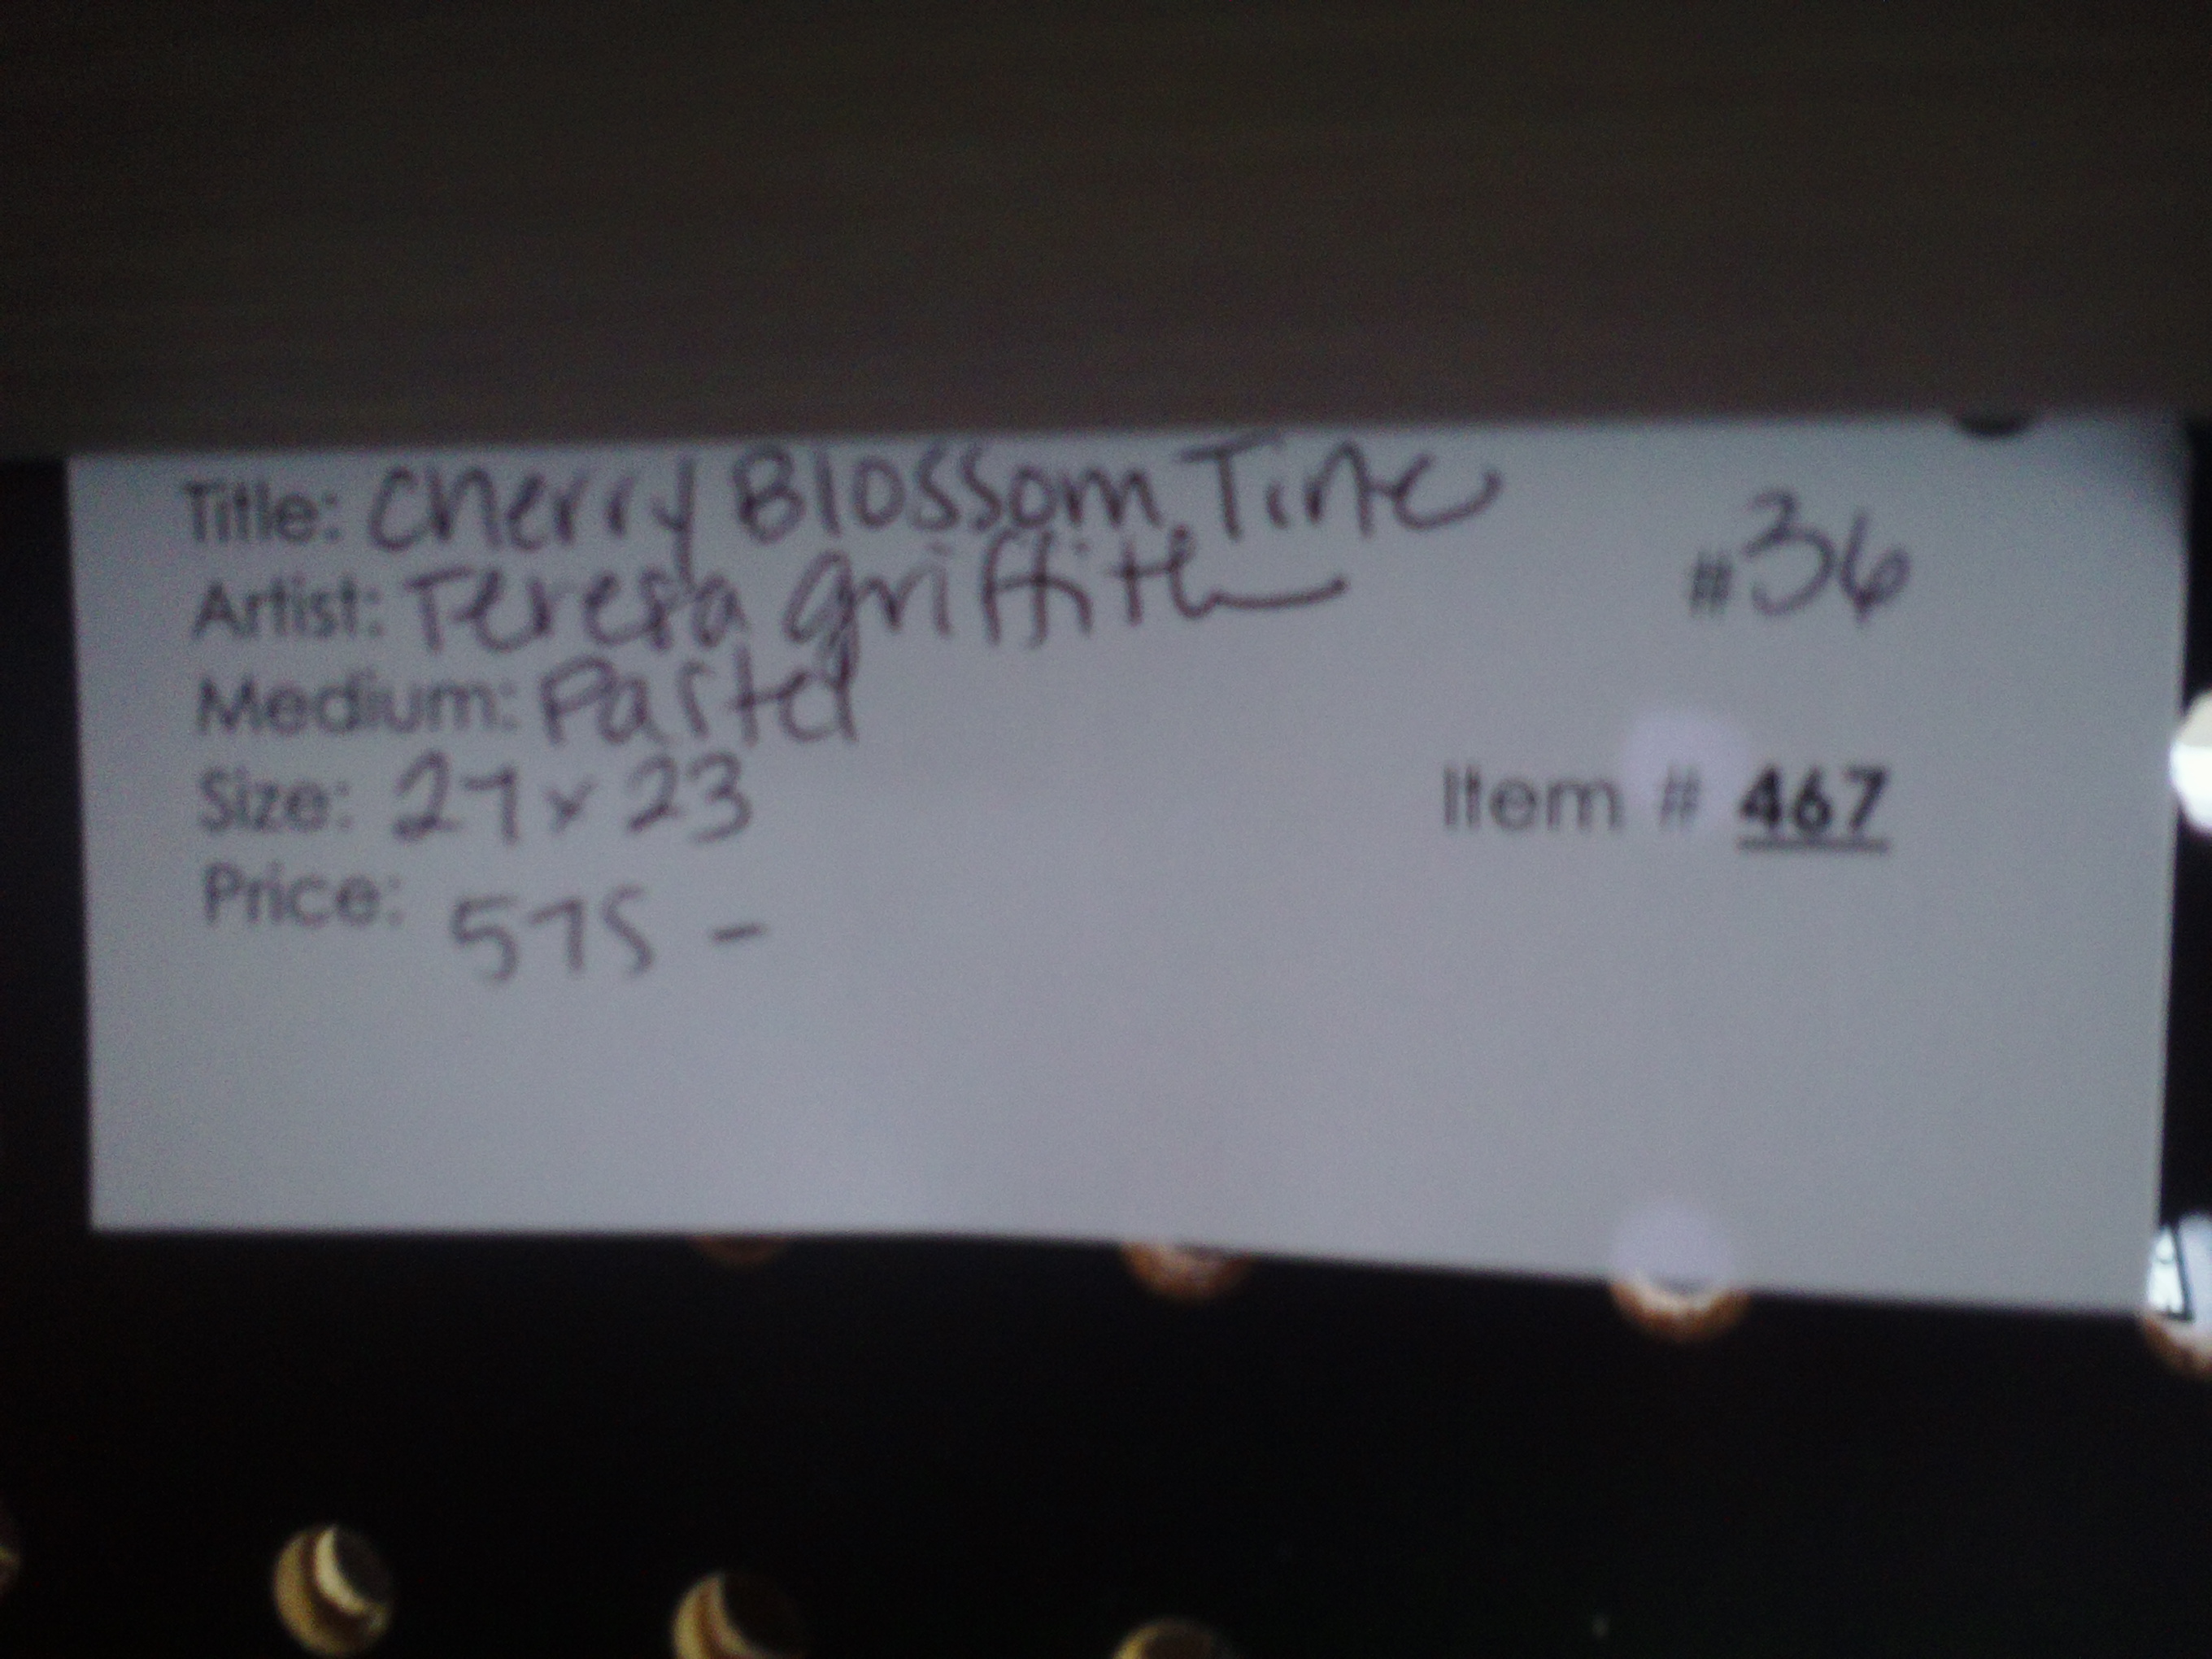 Title: Cherry Blossom Time
Artist: Teresa Griffith
#36
Medium: Pastel
Size: 27 x 23
Item # 467
Price: 575 -